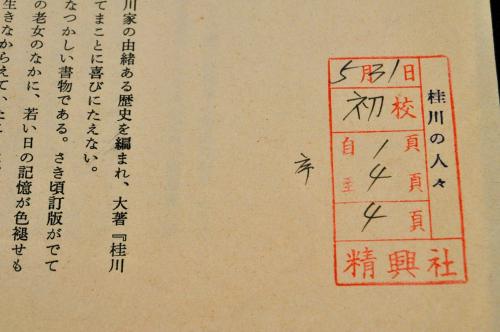 桂川の人々
5月31日
初校
自1頁
至4頁
4頁
精興社
序
川家の由緒ある歴史を編まれ、大著『桂川
てまことに喜びにたえない。
なつかしい書物である。さき頃訂版がでて
の老女のなかに、若い日の記憶が色褪せも
生きながらえていたこ